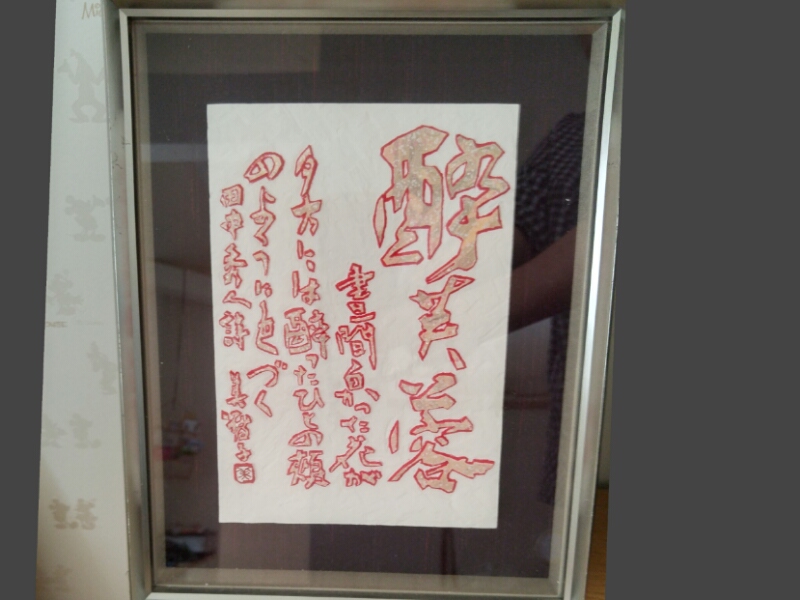 酔芙蓉
昼間白かった花が
夕方には酔ったひとの頬
のように色づく
田中秀人詩 美智子